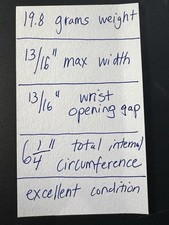 19.8 grams weight
13/16" max width
13/16" wrist
opening gap
6 1/4" total internal
circumference
excellent condition